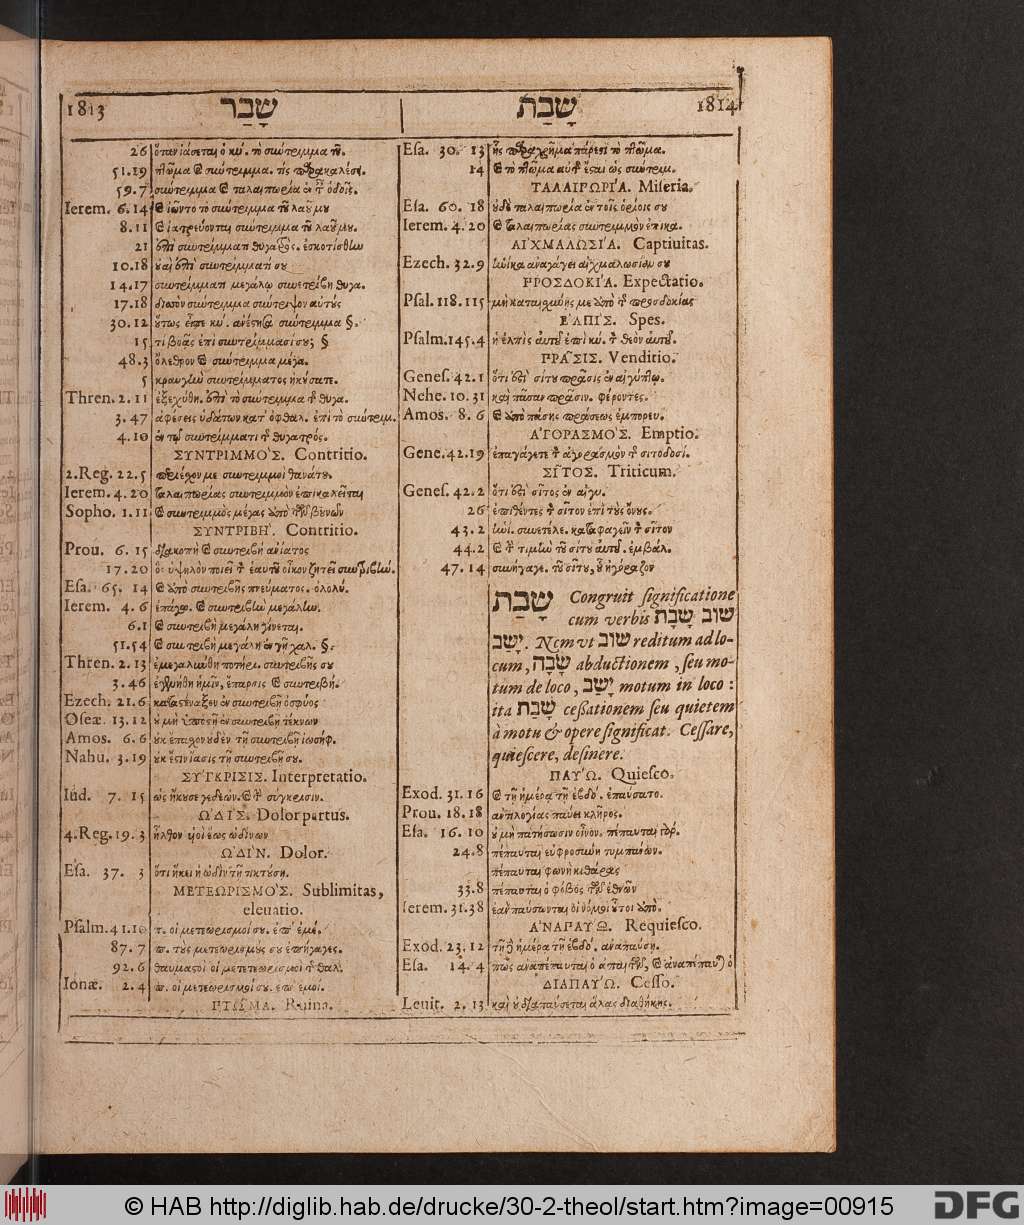 1813 שָׁבַר
שָׁבַת 1814
26 ὅταν ἰάσεται ὁ κύ. τὸ σύντριμμα τȣ͂.
51.19 πτῶμα & σύντριμμα. τίς παρακαλέσῃ.
59.7 σύντριμμα & ταλαιπωρία ἐν τ̃ ὁδοῖς.
Ierem. 6.14 & ἰῶντο τὸ σύντριμμα τȣ͂ λαȣ͂ μȣ
8.11 & ἰατρεύονται σύντριμμα τȣ͂ λαȣ͂ μȣ.
21 ἐπὶ συντρίμματι θυγατρὸς. ἐσκοτίσθην
10.18 ȣ̓αὶ ἐπὶ συντρίμματί σȣ
14.17 συντρίμματι μεγάλῳ συνετρίβη θυγα.
17.18 δισσὸν σύντριμμα σύντριψον αὐτȣ́ς
30.12 ȣ̔́τως εἶπε κύ. ἀνέστησα σύντριμμα §.
15 τί βοᾷς ἐπὶ συντρίμμασί σȣ; §
48.3 ὄλεθρον & σύντριμμα μέγα.
5 κραυγὴν συντρίμματος ἠκȣ́σατε.
Thren. 2.11 ἐξεχύθη. ἐπὶ τὸ σύντριμμα τ̃ θυγα.
3.47 ἀφέσεις ὑδάτων κατ' ὀφθαλ. ἐπὶ τὸ σύντριμ.
4.10 ἐν τῷ συντρίμματι τ̃ θυγατρός.
ΣΥΝΤΡΙΜΜΟΣ. Contritio.
2.Reg. 22.5 περιέχον με συντριμμοὶ θανάτȣ.
Ierem. 4.20 ταλαιπωρίας συντριμμὸν ἐπικαλεῖται
Sopho. 1.11 & συντριμμὸς μέγας ἀπὸ τῶν βȣνῶν
ΣΥΝΤΡΙΒΗ. Contritio.
Prou. 6.15 διακοπὴ & συντριβὴ ἀνίατος
17.20 ὃς ὑψηλὸν ποιεῖ τ̃ ἑαυτȣ͂ οἶκον ζητεῖ συντριβήν.
Esa. 65.14 & ἀπὸ συντριβῆς πνεύματος. ὀλολύ.
Ierem. 4.6 ἐπάγω. & συντριβὴν μεγάλην.
6.1 & συντριβὴ μεγάλη γίνεται.
51.54 & συντριβὴ μεγάλη ἐν γῇ χαλ. §.
Thren. 2.13 ἐμεγαλύνθη ποτήρι. συντριβῆς σȣ
3.46 ἐγενήθη ἡμῖν, ἔπαρσις & συντριβή.
Ezech. 21.6 καταστέναξον ἐν συντριβῇ ὀσφύος
Oseæ. 13.12 ȣ̓ μὴ ὑποστῇ ἐν συντριβῇ τέκνων
Amos. 6.6 ȣ̓κ ἔπαχον ȣ̓δὲν τῇ συντριβῇ ἰωσήφ.
Nahu. 3.19 ȣ̓κ ἔστιν ἴασις τῇ συντριβῇ σȣ.
ΣΥΓΚΡΙΣΙΣ. Interpretatio.
Iud. 7.15 ὡς ἤκȣσε γεδεών. & τ̃ σύγκρισιν.
ΩΔΙΣ. Dolor partus.
4.Reg. 19.3 ἦλθον ȣἱοὶ ἕως ὠδίνων
ΩΔΙΝ. Dolor.
Esa. 37.3 ὅτι ἥκει ἡ ὠδὶν τῇ τικτȣ́σῃ.
ΜΕΤΕΩΡΙΣΜΟΣ. Sublimitas,
eleuatio.
Psalm. 41.10 π. οἱ μετεωρισμοί σȣ. ἐπ' ἐμέ.
87.7 π. τȣ̀ς μετεωρισμȣ́ς σȣ ἐπήγαγες.
92.6 θαυμαστοὶ οἱ μετεωρισμοὶ τ̃ θαλ.
Ionæ. 2.4 π. οἱ μετεωρισμοί σȣ. ἐπ' ἐμοί.
ΠΤΩΜΑ. Ruina.
Esa. 30.13 ἧς παραχρῆμα πάρεστι τὸ πτῶμα.
14 & τὸ πτῶμα αὐτȣ͂ ἔσται ὡς σύντριμ.
ΤΑΛΑΙΠΩΡΙΑ. Miseria.
Esa. 60.18 ȣ̓δὲ ταλαιπωρία ἐν τοῖς ὁρίοις σȣ
Ierem. 4.20 & ταλαιπωρίας συντριμμὸν ἐπικα.
ΑΙΧΜΑΛΩΣΙΑ. Captiuitas.
Ezech. 32.9 ἡνίκα ἀναγάγει αἰχμαλωσίαν σȣ
ΠΡΟΣΔΟΚΙΑ. Expectatio.
Psal. 118.115 μὴ καταισχύνῃς με ἀπὸ τ̃ προσδοκίας
ΕΛΠΙΣ. Spes.
Psalm. 145.4 ἡ ἐλπὶς αὐτȣ͂ ἐπὶ κύ. τ̃ θεὸν αὐτȣ͂.
ΠΡΑΣΙΣ. Venditio.
Genes. 42.1 ὅτι ἐστὶ σίτȣ πρᾶσις ἐν αἰγύπτῳ.
Nehe. 10.31 καὶ πᾶσαν πρᾶσιν. φέροντες.
Amos. 8.6 & ἀπὸ πάσης πράσεως ἐμπορευ.
ΑΓΟΡΑΣΜΟΣ. Emptio.
Gene. 42.19 ἐπαγάγετε τ̃ ἀγορασμὸν τ̃ σιτοδοσί.
ΣΙΤΟΣ. Triticum.
Genes. 42.2 ὅτι ἐστὶ σῖτος ἐν αἰγυ.
26 ἐπιθέντες τ̃ σῖτον ἐπὶ τȣ̀ς ὄνȣς.
43.2 ἡνί. συνετέλε. καταφαγεῖν τ̃ σῖτον
44.2 & τ̃ τιμὴν τȣ͂ σίτȣ αὐτȣ͂. ἐμβάλ.
47.14 συνήγαγε. τȣ͂ σίτȣ, ȣ̔͂ ἠγόραζον
שָׁבַת Congruit significatione
cum verbis שָׁבָה שׁוּב
יָשַׁב. Nem ut שׁוּב reditum ad lo-
cum, שָׁבָה abductionem, seu mo-
tum de loco, יָשַׁב motum in loco:
ita שָׁבַת cessationem seu quietem
à motu & opere significat. Cessare,
quiescere, desinere.
ΠΑΥΩ. Quiesco.
Exod. 31.16 & τῇ ἡμέρᾳ τῇ ἑβδό. ἐπαύσατο.
Prou. 18.18 ἀντιλογίας παύει κλῆρος.
Esa. 16.10 ȣ̓ μὴ πατήσωσιν οἶνον. πέπαυται γάρ.
24.8 πέπαυται εὐφροσύνη τυμπάνων.
πέπαυται φωνὴ κιθάρας
33.8 πέπαυται ὁ φόβος τῶν ἐθνῶν
Ierem. 31.38 ἐὰν παύσωνται οἱ νόμοι ȣ̔͂τοι ἀπὸ.
ΑΝΑΠΑΥΩ. Requiesco.
Exod. 23.12 τῇ δὲ ἡμέρᾳ τῇ ἑβδό. ἀναπαύσῃ.
Esa. 14.4 πῶς ἀναπέπαυται ὁ ἀπαιτῶν, & ἀναπέπαυται ὁ
ΔΙΑΠΑΥΩ. Cesso.
Leuit. 2.13 καὶ ȣ̓ διαπαύσεται ἅλας διαθήκης.
© HAB http://diglib.hab.de/drucke/30-2-theol/start.htm?image=00915
DFG